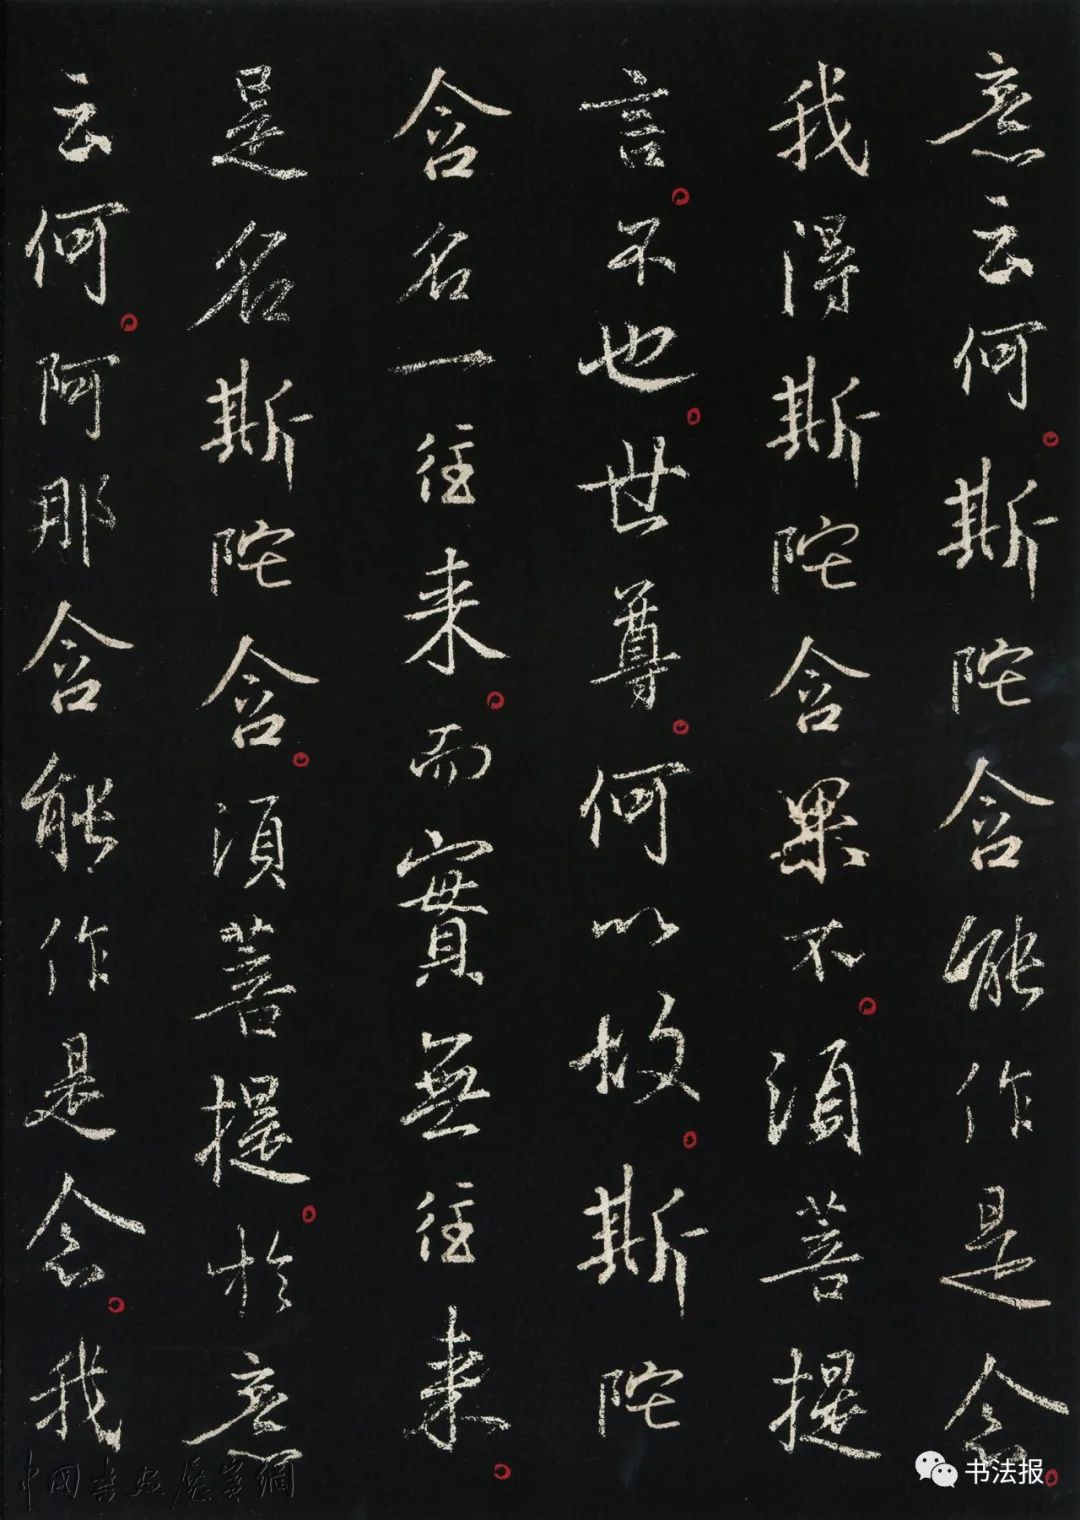 意云何。斯陀含能作是念。
我得斯陀含果不。須菩提
言。不也。世尊。何以故。斯陀
含名一往来。而實無往来。
是名斯陀含。須菩提。於意
云何。阿那含能作是念。我
中国书画展赛網
书法报